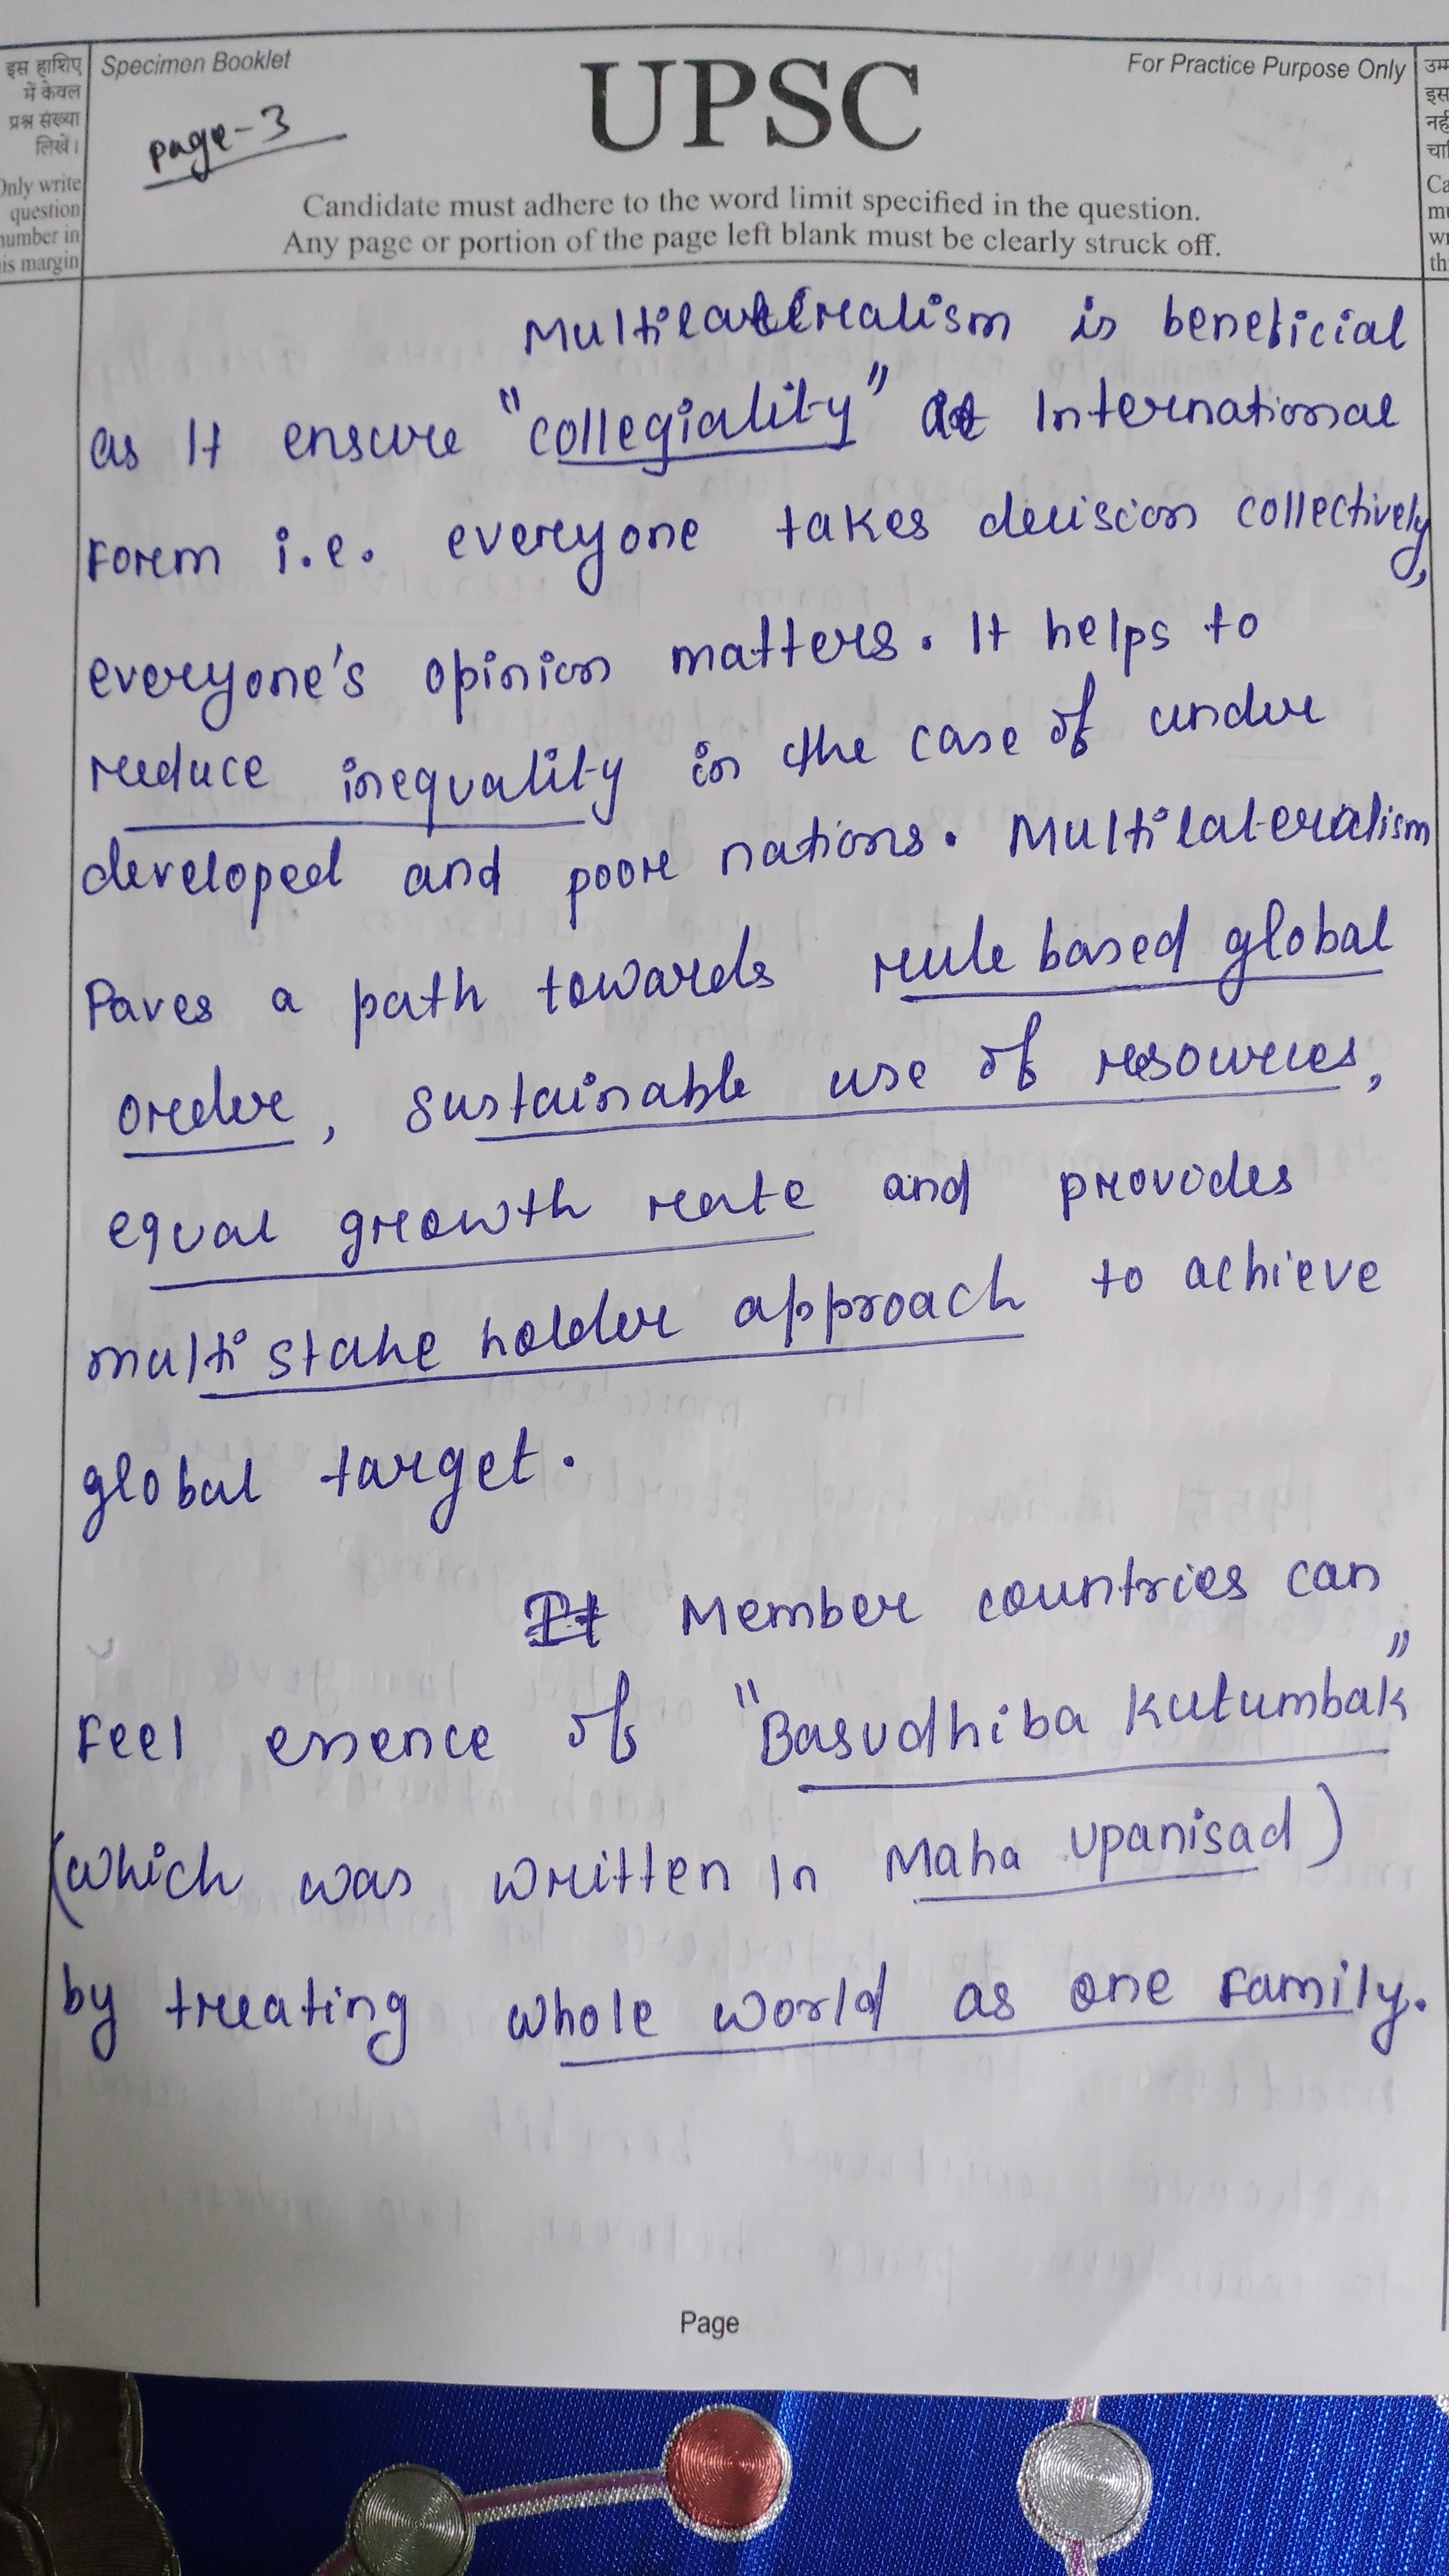 इस हाशिए
में केवल
प्रश्न संख्या
लिखें।
Only write
question
number in
this margin
Specimen Booklet
page-3
UPSC
For Practice Purpose Only
Candidate must adhere to the word limit specified in the question.
Any page or portion of the page left blank must be clearly struck off.
उम्म
इस
नह
चा
Ca
mu
wr
th
Multilaterealism is beneficial
as It ensure "collegiality" at International
Forem i.e. everyone takes decision collectively,
everyone's opinion matters. It helps to
reduce inequality in the case of under
developed and poor nations. Multilateralism
Paves a path towards rule based global
order, sustainable use of resources,
equal growth rate and provides
multi stake holder approach to achieve
global target.
It Member countries can
Feel essence of "Basudhiba Kutumbak"
(which was written In Maha Upanisad)
by treating whole world as one Family.
Page